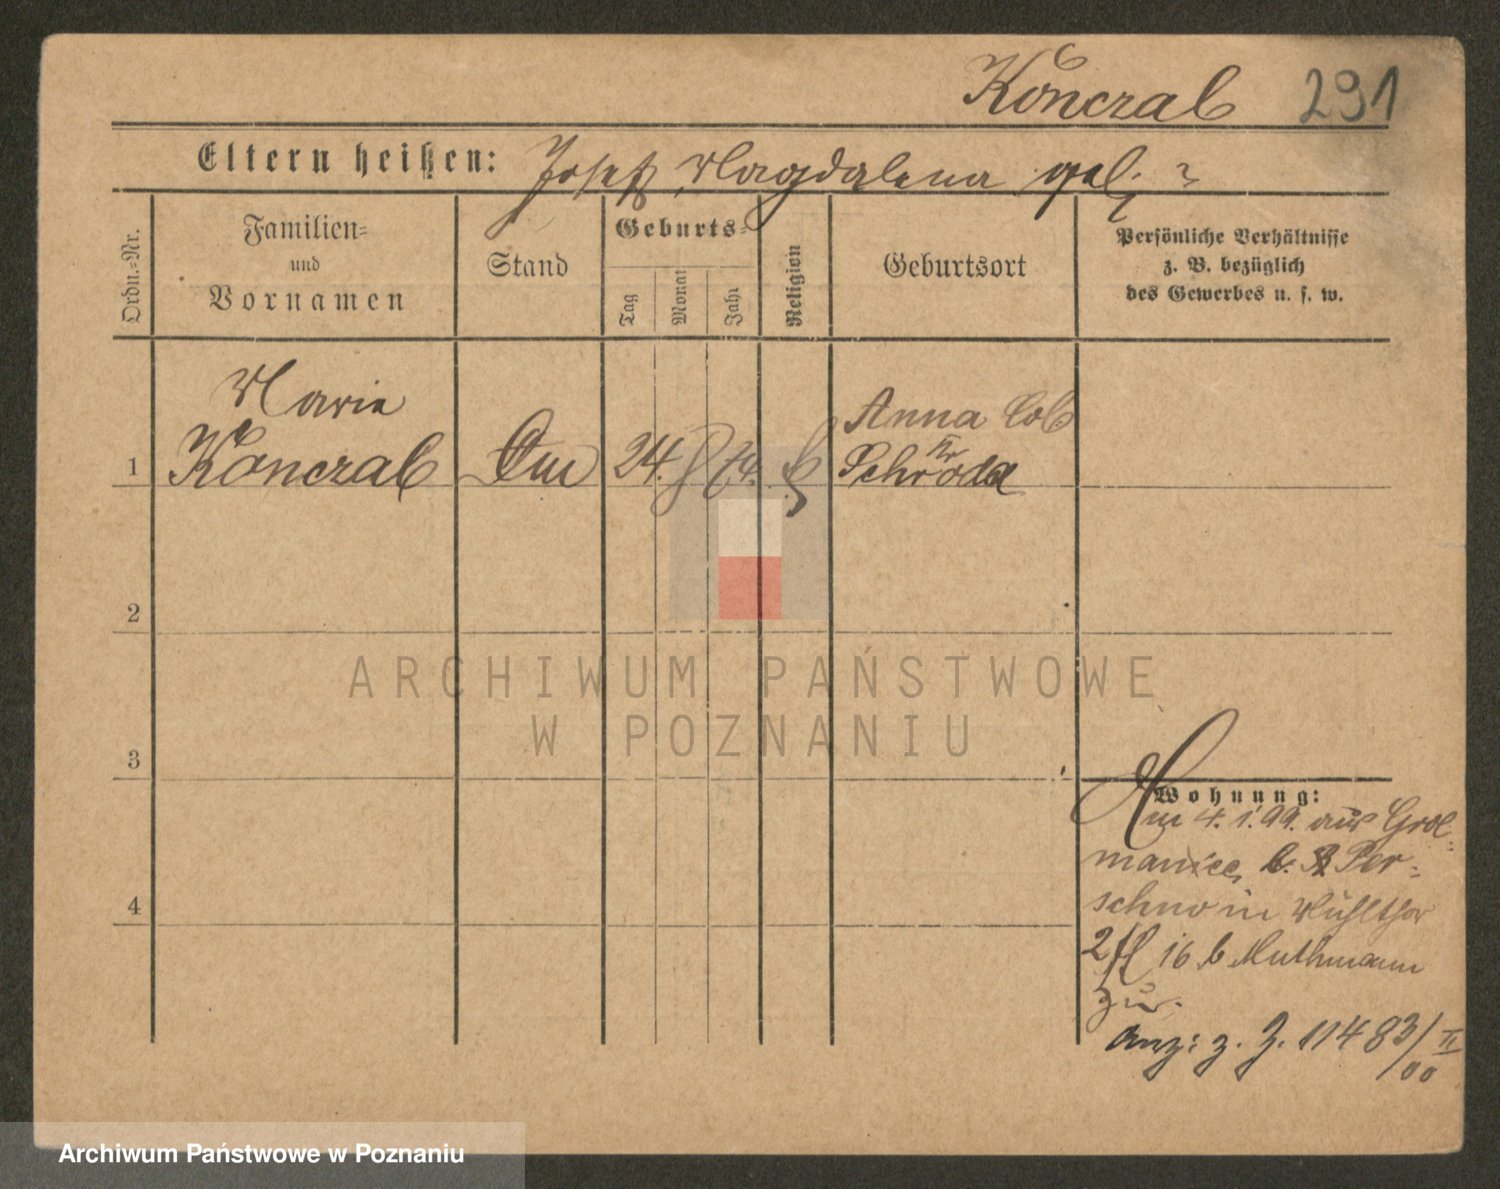 Konczal 291
Eltern heißen: Josef, Magdalena geb. ?
Ordn.-Nr.
Familien-
und
Vornamen
Stand
Geburts-
Tag
Monat
Jahr
Religion
Geburtsort
Persönliche Verhältnisse
z. B. bezüglich
des Gewerbes u. s. w.
Marie
1 Konczal 24. 8 74. Anna Col.
Kr
Schroda
2
3
4
Wohnung:
Am 4.1.99. aus Grol-
b. Per-
schno in Mühlthor
2/II 16 b Muthmann
zur.
Anz: z. J. 11483/II
00
ARCHIWUM PAŃSTWOWE
W POZNANIU
Archiwum Państwowe w Poznaniu